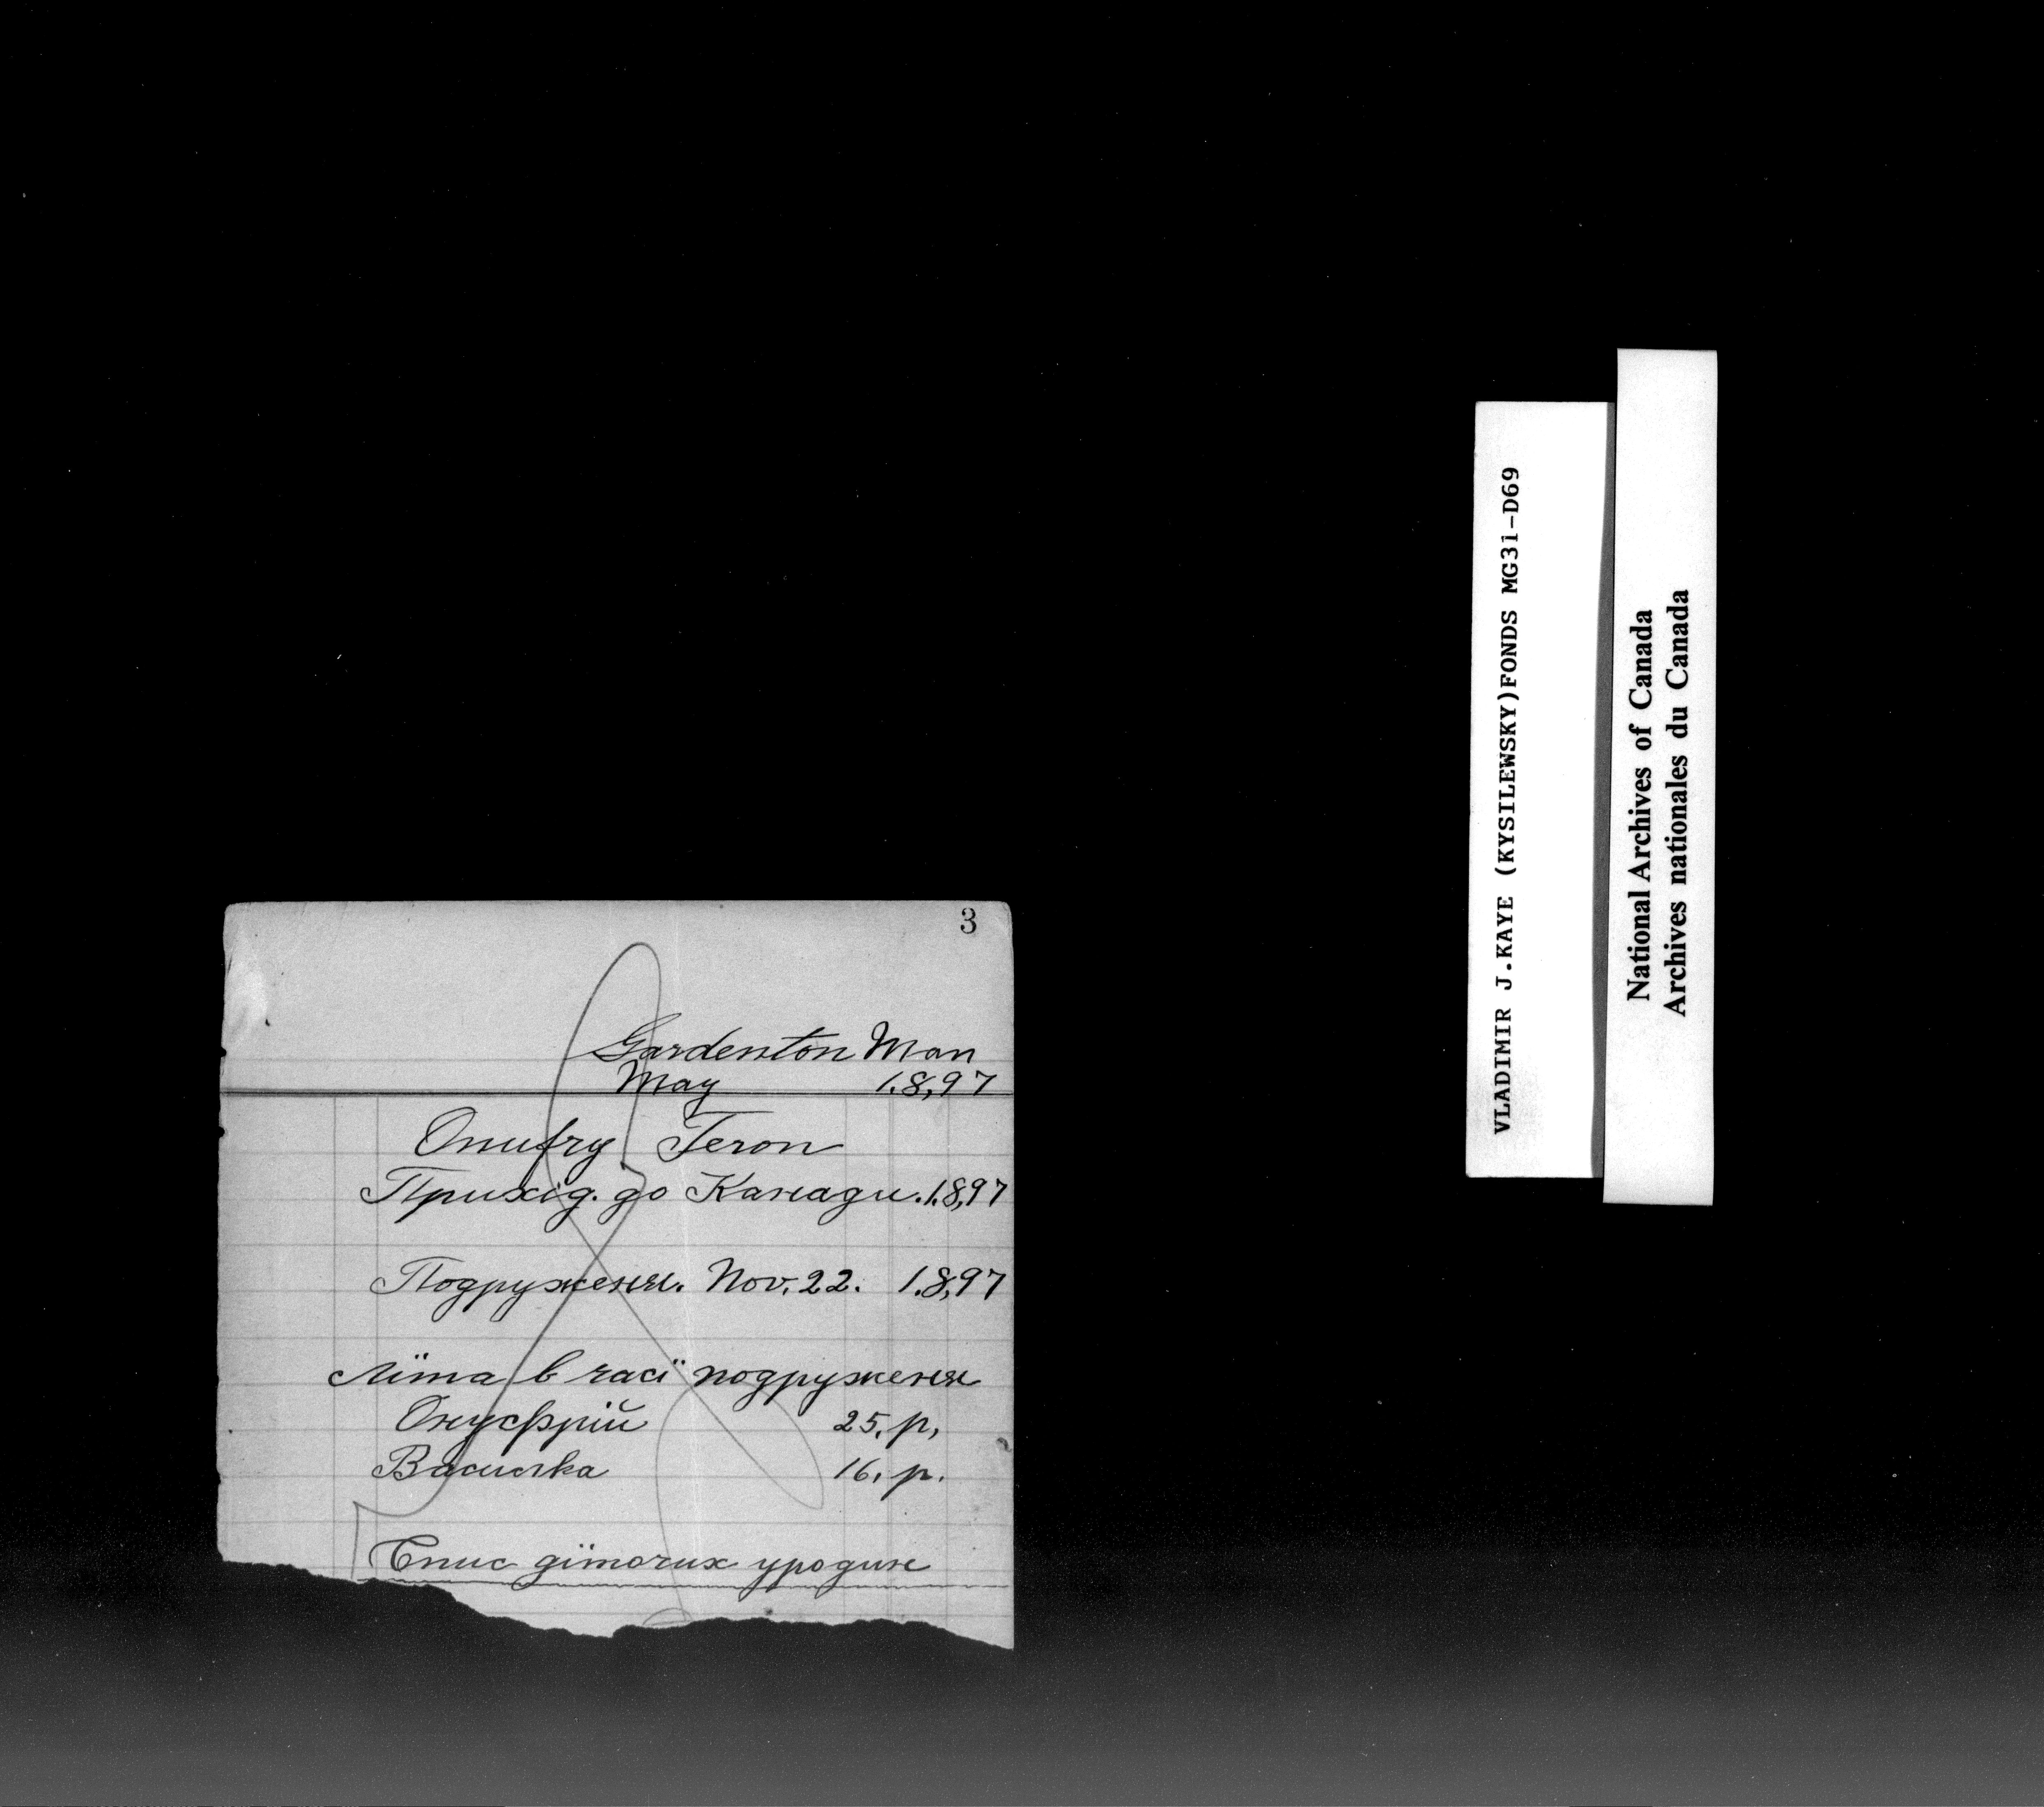 3
Gardenton Man
May 1.8,97
Onufry Teron
Прихід. до Канади. 1.8,97
Подруженя. Nov. 22. 1.8,97
Літа в часї подруженя
Онуфрій 25. р,
Василка 16. р.
Спис дїточих уродин
VLADIMIR J.KAYE (KYSILEWSKY)FONDS MG31-D69
National Archives of Canada
Archives nationales du Canada